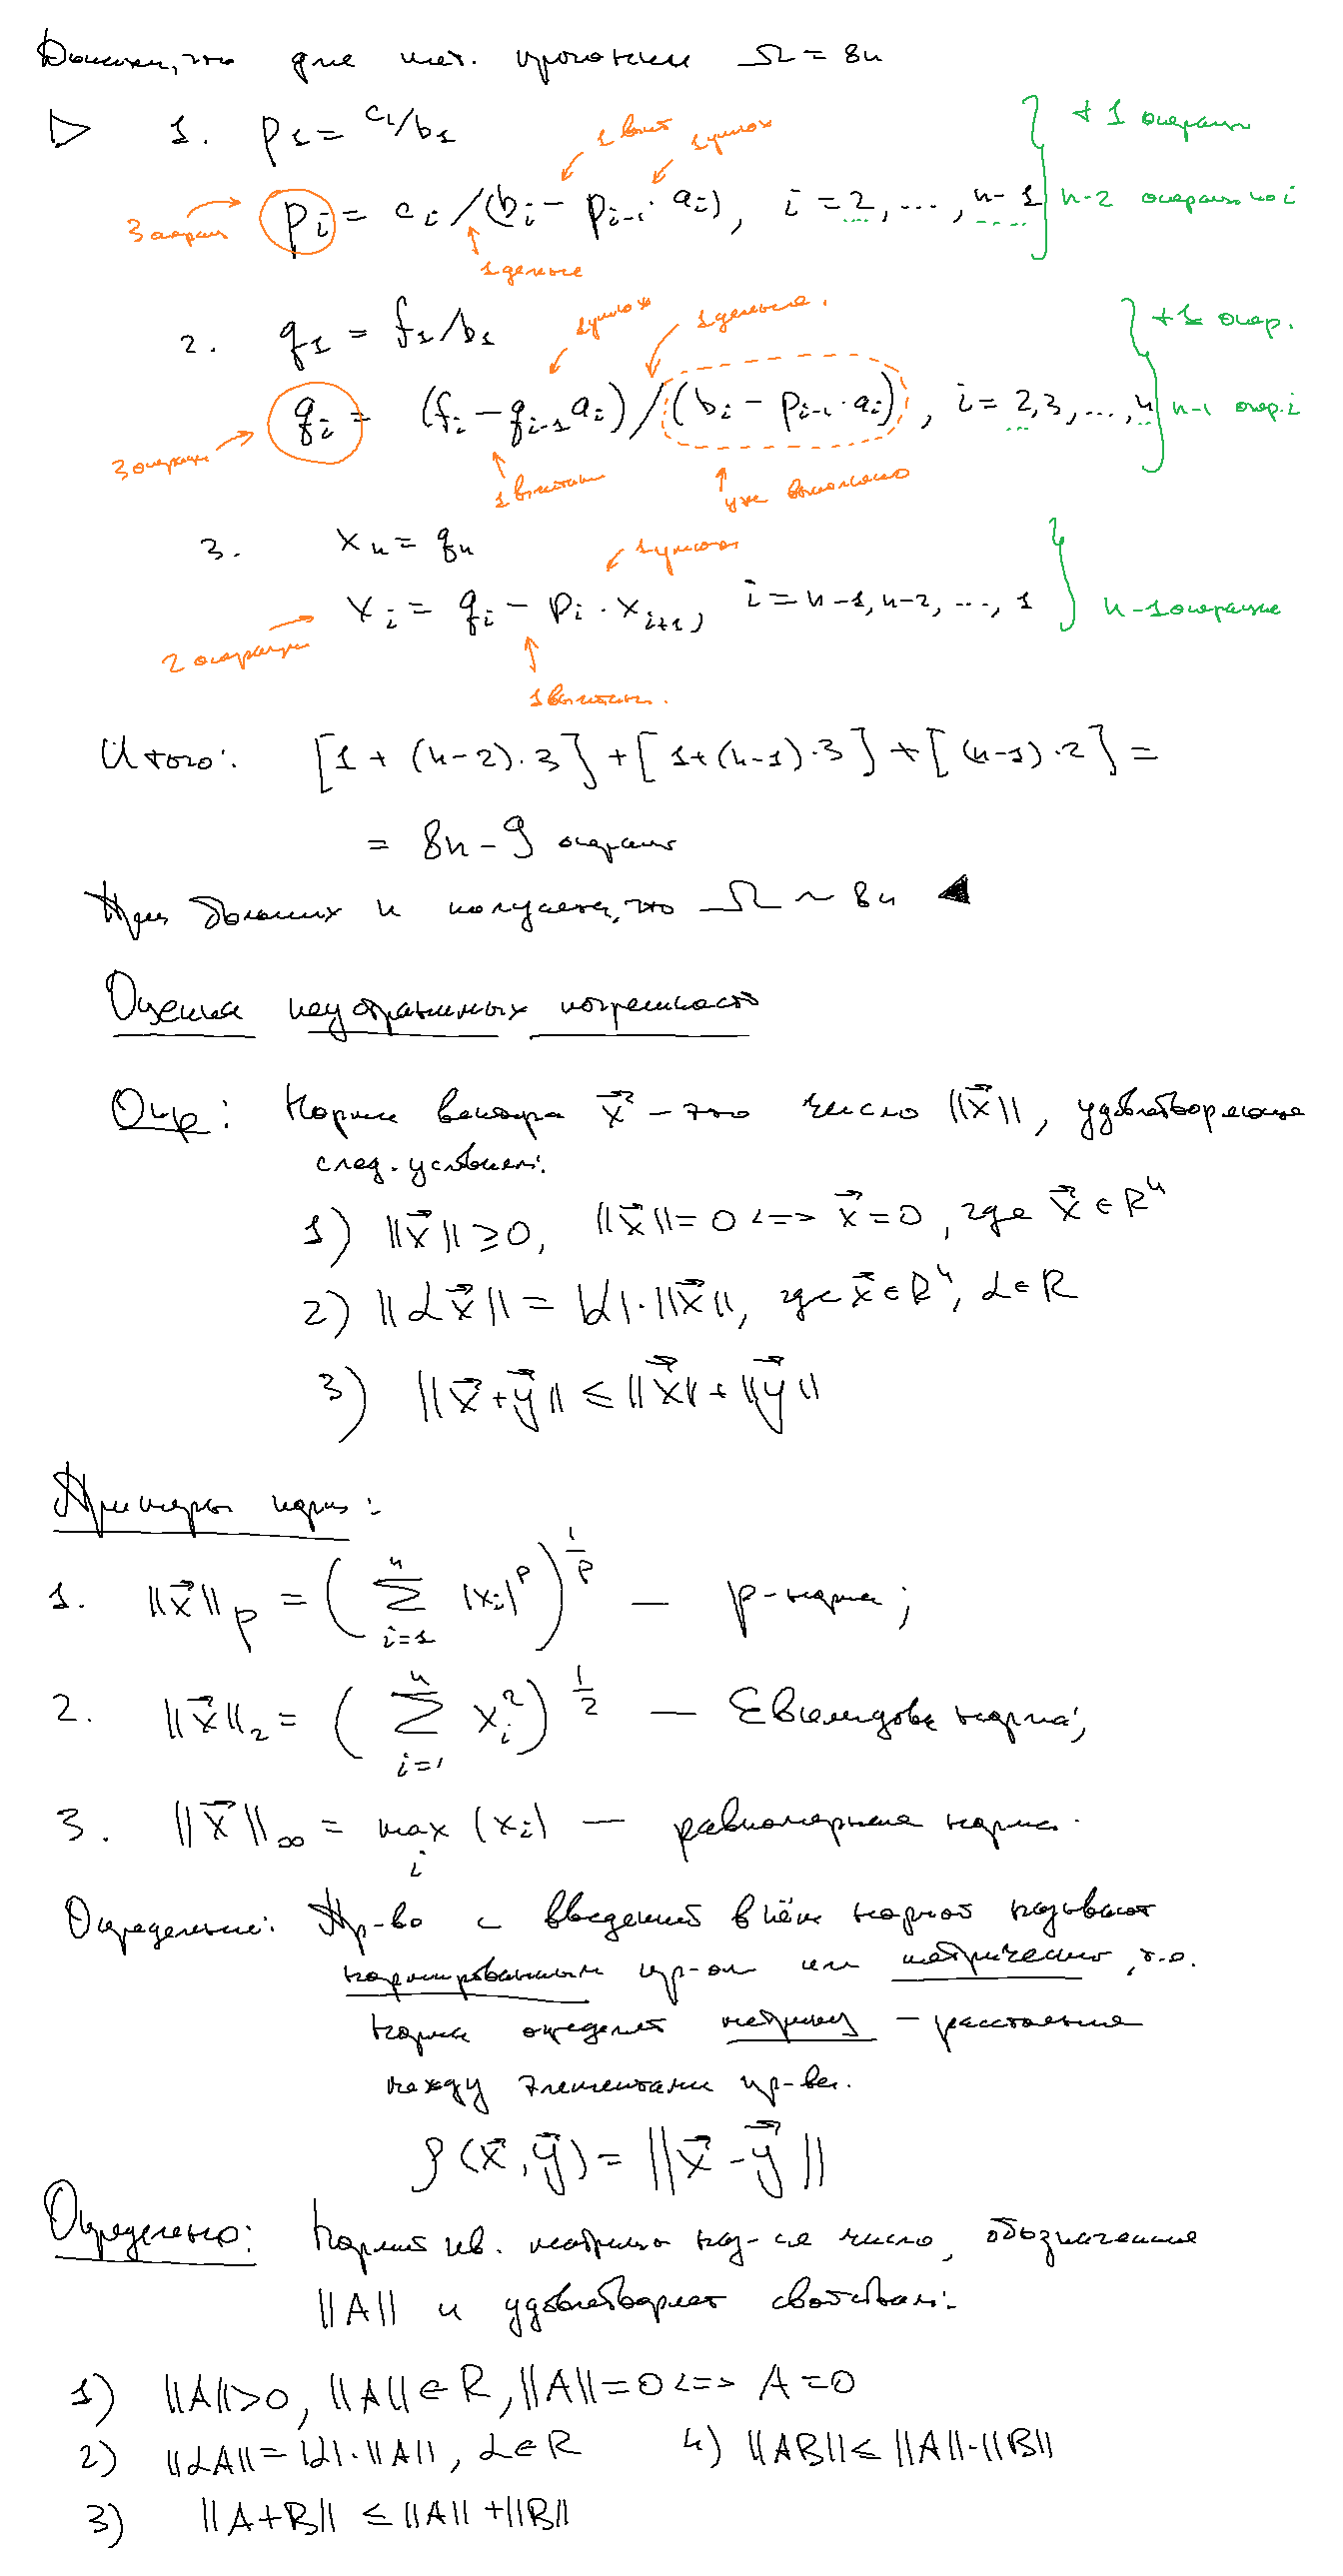 Докажем, что для мет. прогонки Ω = 8n
▷ 1. p₁ = c₁/b₁
1 вычит 1 умнож
+ 1 операция
3 операции pᵢ = cᵢ/(bᵢ - pᵢ₋₁·aᵢ), i = 2, ..., n-1 n-2 операций по i
1 деление
2. q₁ = f₁/b₁
1 умнож 1 деление.
+1 опер.
qᵢ = (fᵢ - qᵢ₋₁aᵢ)/(bᵢ - pᵢ₋₁·aᵢ), i = 2,3, ..., n n-1 опер. i
3 операции
1 вычитание уже выполнено
3. xₙ = qₙ
1 умнож
xᵢ = qᵢ - pᵢ·xᵢ₊₁, i = n-1, n-2, ..., 1 n-1 операция
2 операции
1 вычитан.
Итого: [1 + (n-2)·3] + [1+(n-1)·3] + [(n-1)·2] =
= 8n - 9 операций
При больших n получаем, что Ω ~ 8n ◀
Оценка неустранимых погрешност
Опр: Норма вектора x⃗ - это число ||x⃗||, удовлетворяющее
след. условиям:
1) ||x⃗|| ≥ 0, ||x⃗|| = 0 <=> x⃗ = 0, где x⃗ ∈ Rⁿ
2) ||αx⃗|| = |α|·||x⃗||, где x⃗ ∈ Rⁿ, α ∈ R
3) ||x⃗+y⃗|| ≤ ||x⃗|| + ||y⃗||
Примеры норм:
1. ||x⃗||ₚ = (∑ⁿᵢ₌₁ |xᵢ|ᵖ)^(1/p) — p-норма;
2. ||x⃗||₂ = (∑ⁿᵢ₌₁ xᵢ²)^(1/2) — Евклидова норма;
3. ||x⃗||∞ = maxᵢ |xᵢ| — равномерная норма.
Определение: Пр-во с введенной в нём нормой называют
нормированным пр-ом или метрическим, т.о.
норма определяет метрику - расстояние
между элементами пр-ва.
ρ(x⃗, y⃗) = ||x⃗ - y⃗||
Определение: Нормой кв. матрицы наз-ся число, обозначаемое
||A|| и удовлетворяет свойствам:
1) ||A|| > 0, ||A|| ∈ R, ||A|| = 0 <=> A = 0
2) ||αA|| = |α|·||A||, α ∈ R 4) ||AB|| ≤ ||A||·||B||
3) ||A+B|| ≤ ||A|| + ||B||